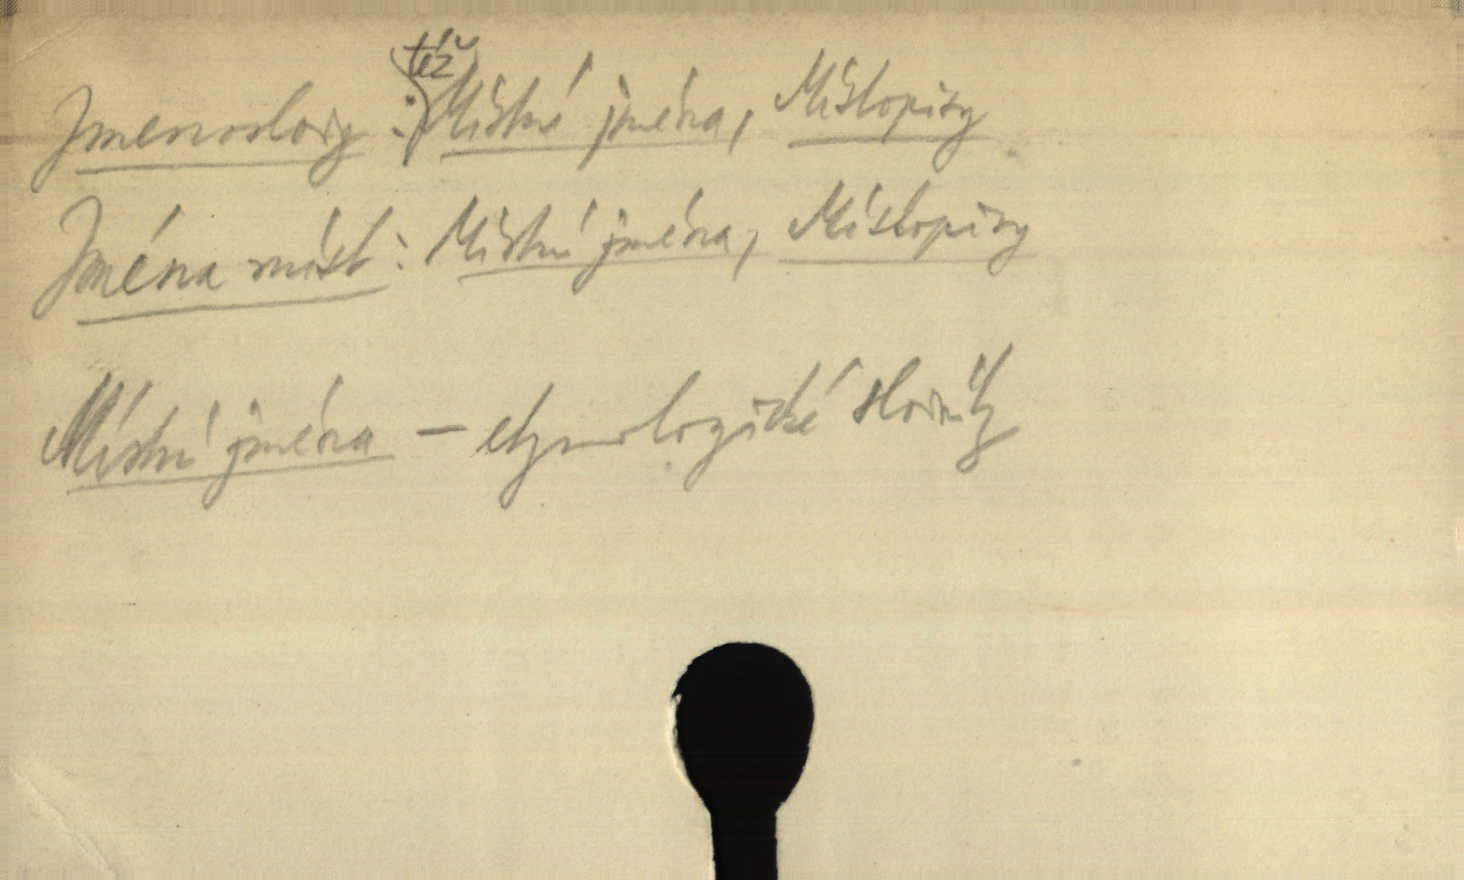 Jmenoslovy : též Místní jména, Místopisy
Jména míst : Místní jména, Místopisy
Místní jména – etymologické slovníky